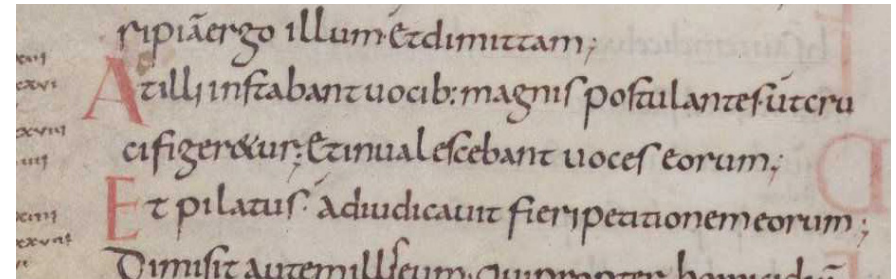 ripiā ergo illum et dimittam;
At illi instabant vocib: magnis postulantes ut cru
cifigeretur; Et invalescebant voces eorum;
Et pilatus adiudicavit fieri petitionem eorum;
Dimisit autem ill eum qui propter